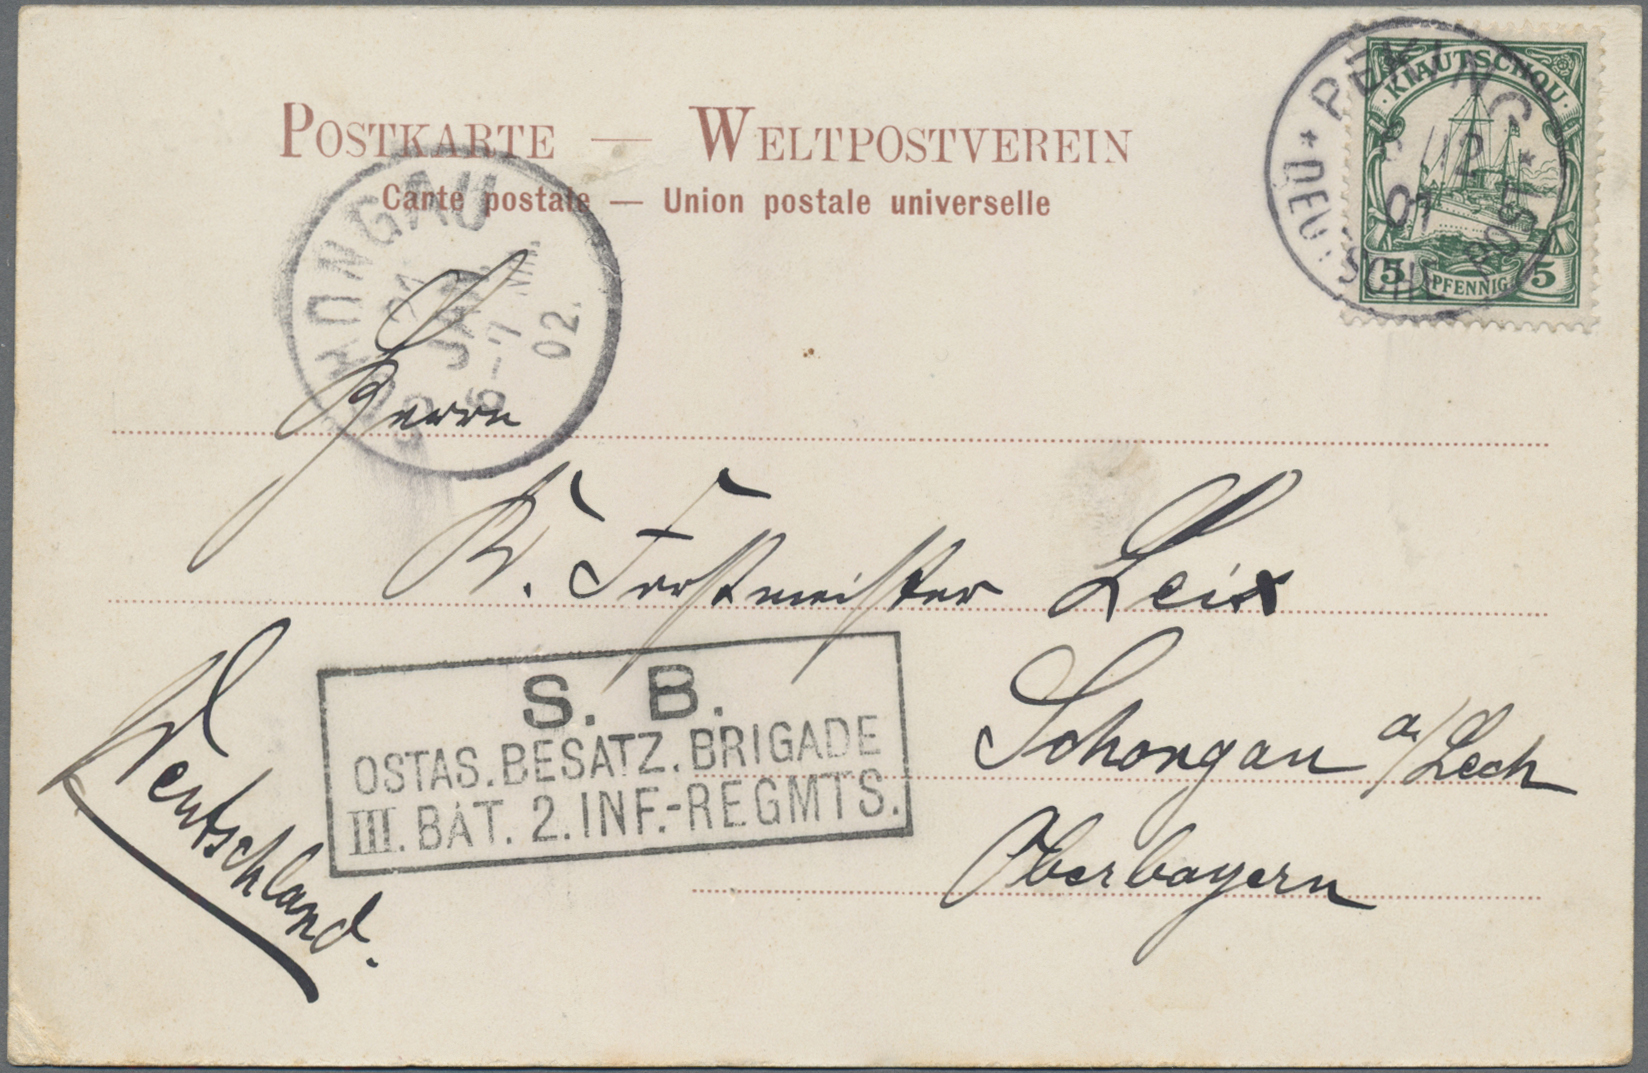 POSTKARTE — WELTPOSTVEREIN
Carte postale — Union postale universelle
KIAUTSCHOU
5 PFENNIG 5
* PEKING *
12
01
DEUTSCHE POST
SCHONGAU
21
JAN.
6-7 NM.
02.
Herrn
K. Forstmeister Leix
Schongau a/Lech
Oberbayern
Deutschland.
S. B.
OSTAS. BESATZ. BRIGADE
III. BAT. 2. INF.-REGMTS.